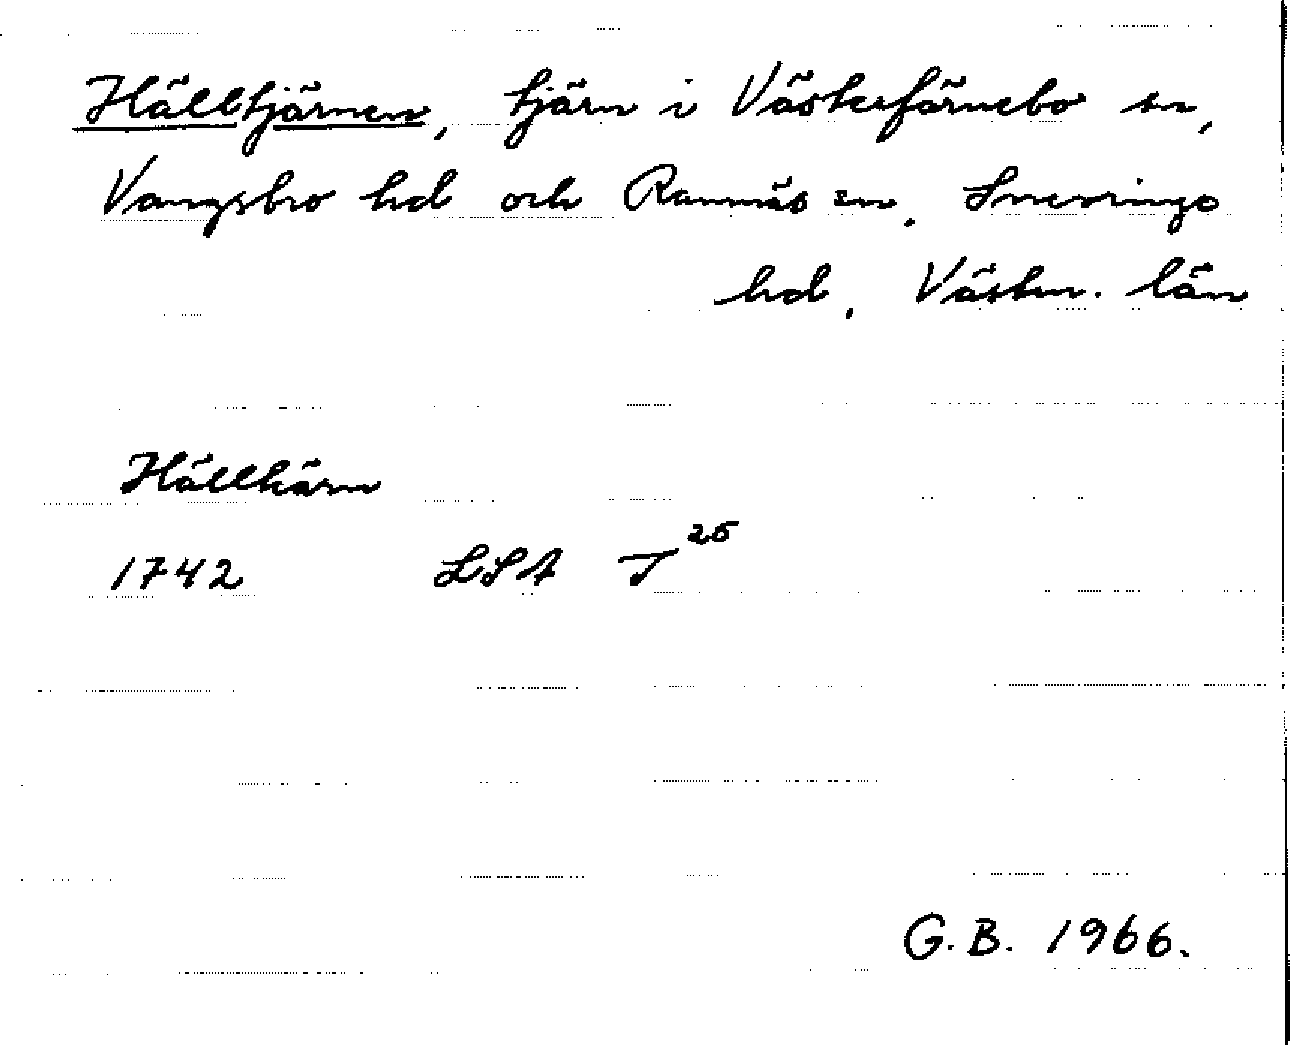 Hälltjärnen, tjärn i Västerfärnebo sn,
Vangsbro hd och Ramnäs sn, Snevringe
hd, Västm. län
Hälltärn
1742 LSA T 25
G.B. 1966.